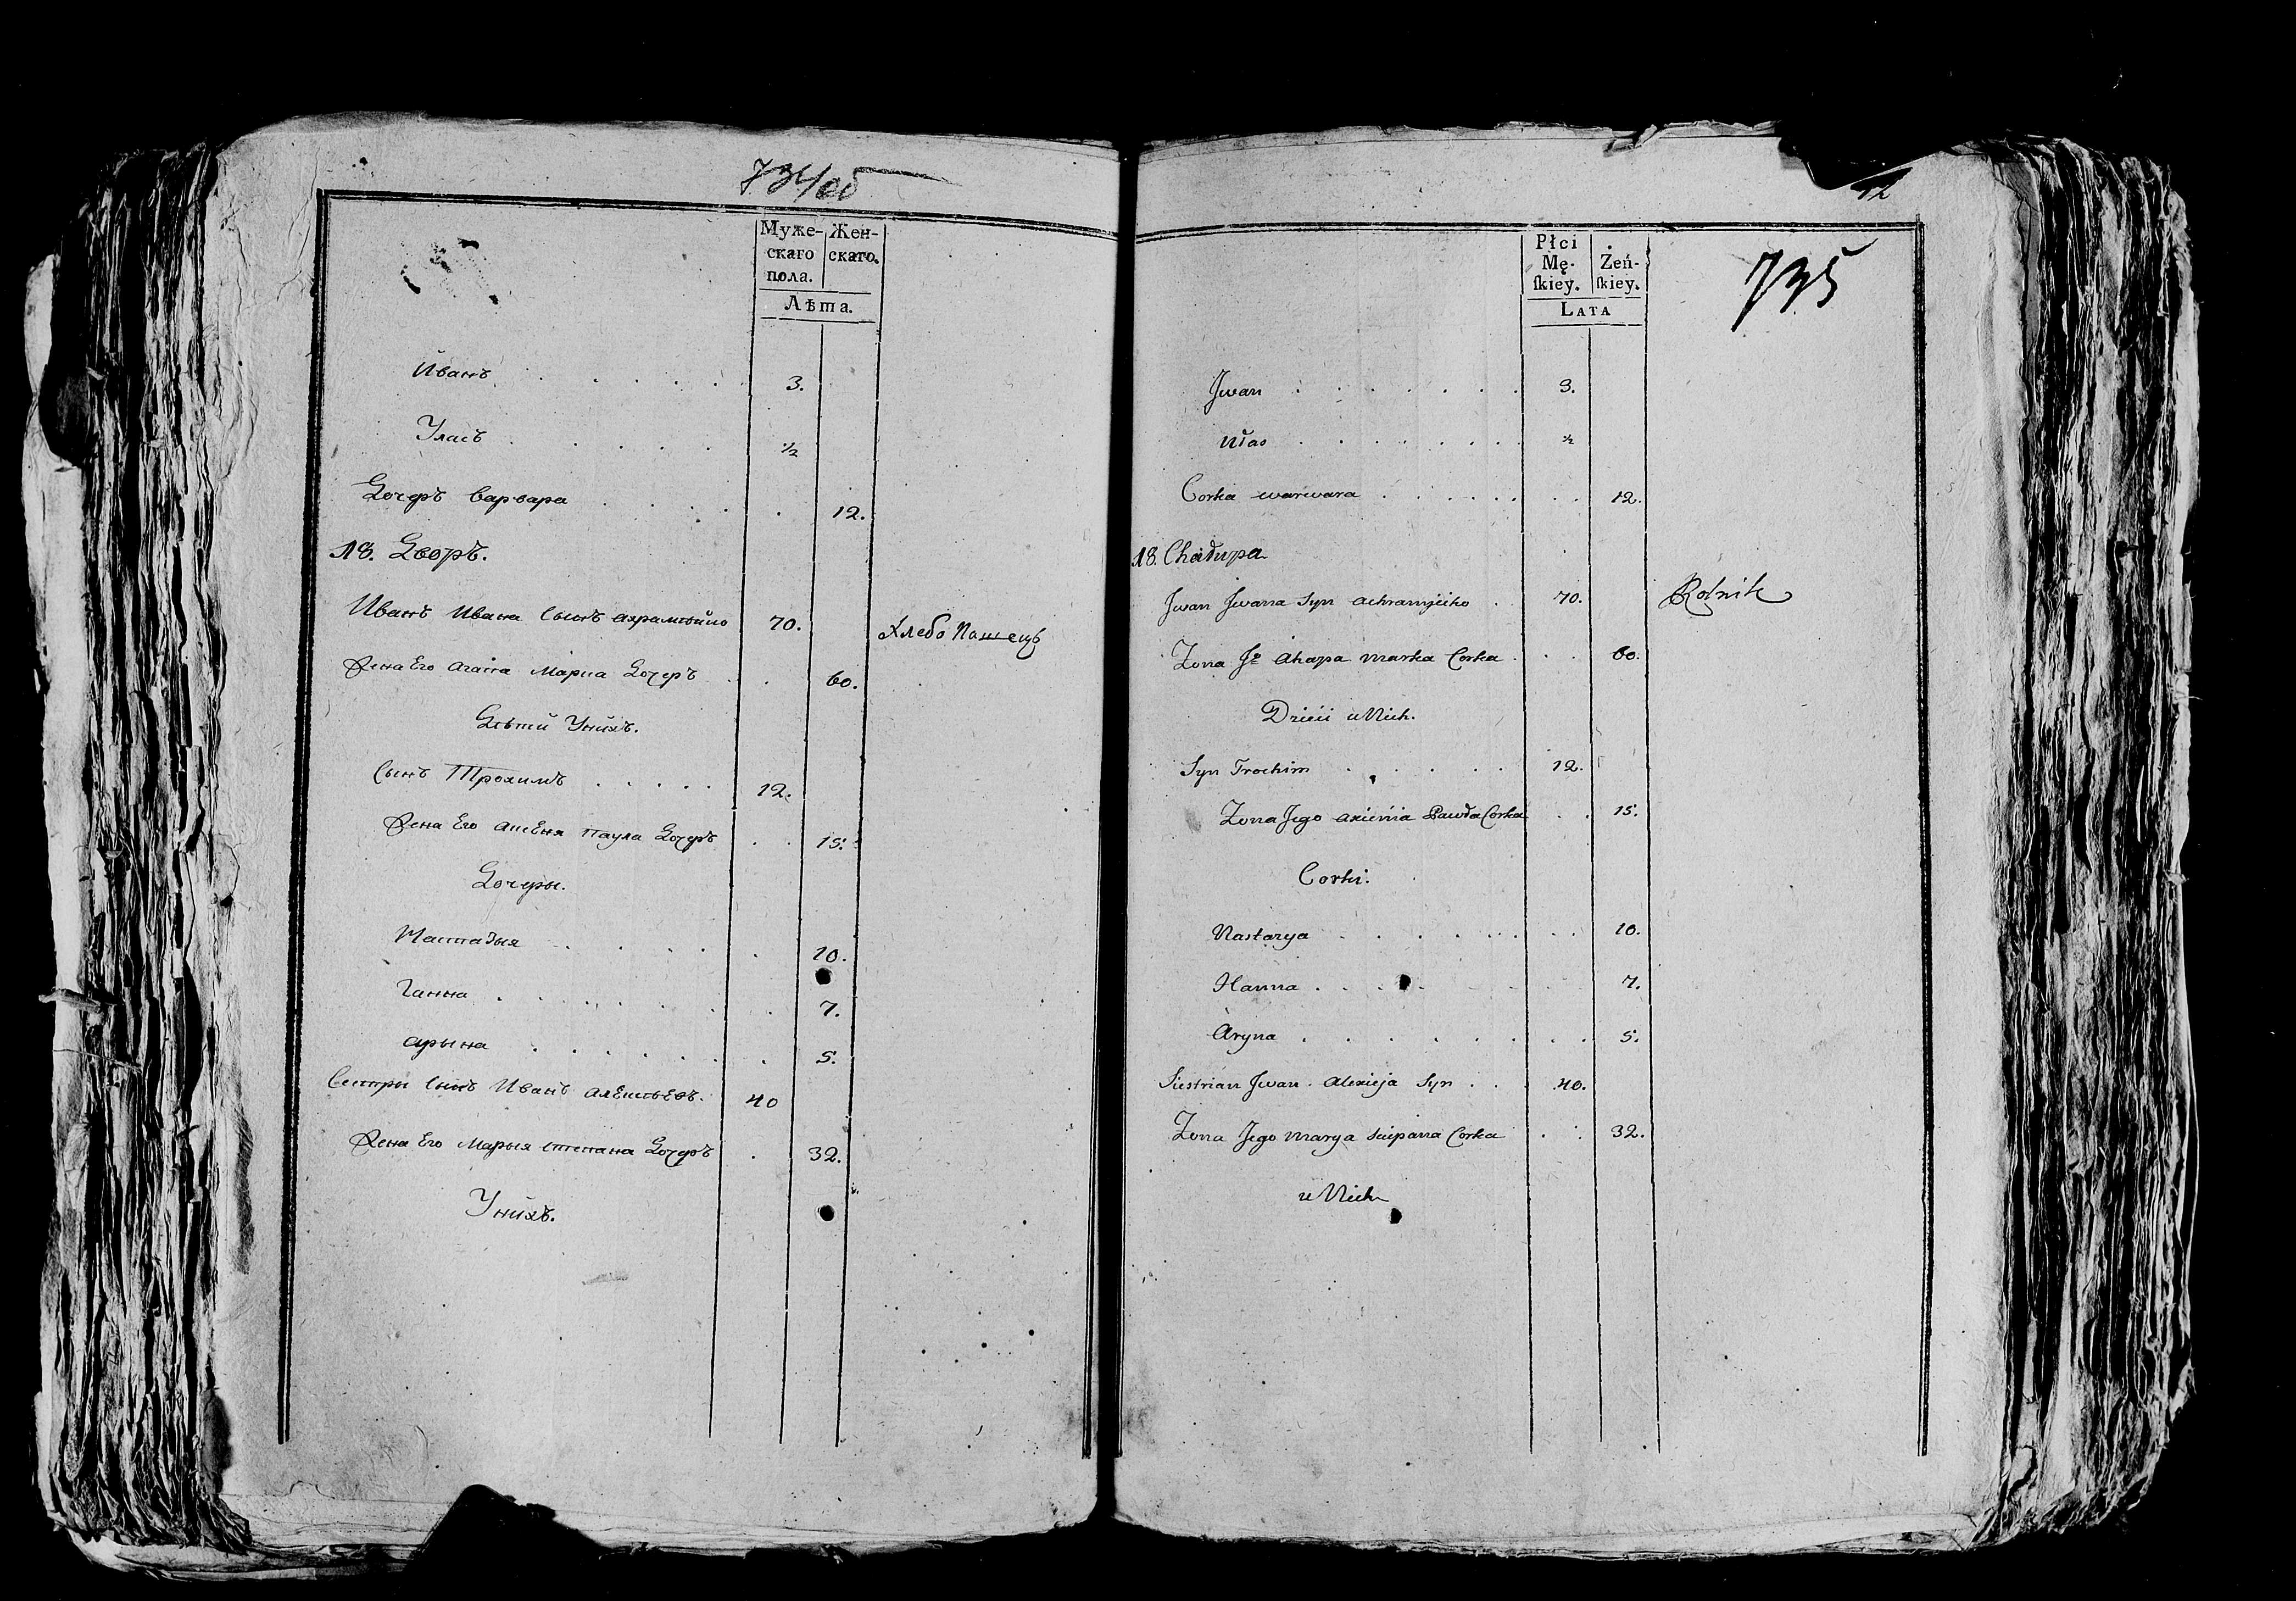 734об
Муже-
скаго
пола.
Жен-
скаго.
Лѣта.
Иванъ 3.
Уласъ ½
Дочеръ варвара 12.
18. Дворъ.
Иванъ Ивана Сынъ 70. Хлебо Пашецъ
Жена Его агапа Марка Дочеръ 60.
Дѣтй Унйхъ.
Сынъ Трохимъ 12.
Жена Его аксеня паула Дочеръ 15.
Дочеры.
Настазыя 10.
Ганна 7.
арына 5.
Сестры Сынъ Иванъ алексѣевъ. 40
Жена Его Марыя степана Дочеръ 32.
Унйхъ.
12
735
Płci
Mę-
ſkiey.
Żeń-
ſkiey.
Lata
Jwan 3.
Ułas ½
Corka warwara 12.
18. Chałupa
Jwan Jwana Syn 70. Rolnik
Zona Jº Ahapa marka Corka 60.
Dzieci u Nich.
Syn Trochim 12.
Zona Jego axienia Pawła Corka 15.
Corki.
Nastazya 10.
Hanna 7.
Aryna 5.
Siestrian Jwan Alexieja Syn 40.
Zona Jego marya sciepana Corka 32.
u Nich